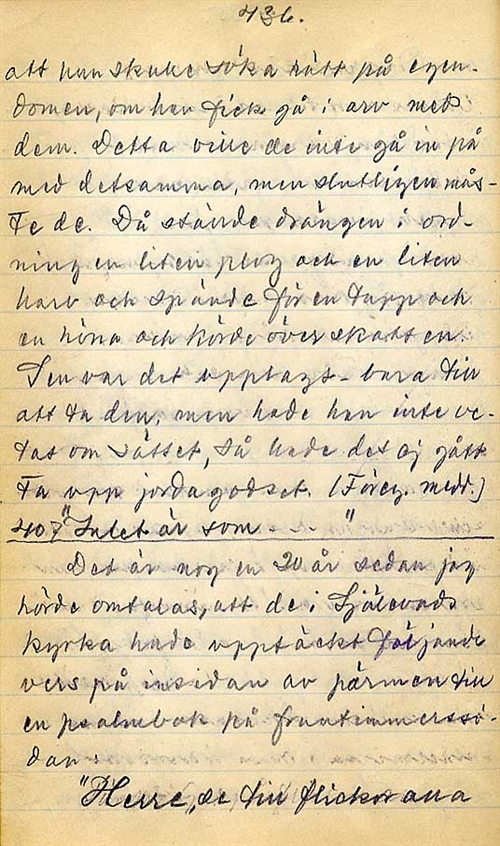 436.
att han skulle söka rätt på egen-
domen, om han fick gå i arv med
dem. Detta ville de inte gå in på
med detsamma, men slutligen mås-
te de. Då stände drängen i ord-
ning en liten plog och en liten
harv och spände för en tupp och
en höna och körde över skatten.
Sen var det upptags- bara till
att ta den, men hade han inte ve-
tat om sättet, så hade det ej gått
ta upp jordagodset. (Föreg. medd.)
407 "Intet är som - . - "
Det är nog en 20 år sedan jag
hörde omtalas, att de i Själevads
kyrka hade upptäckt följande
vers på insidan av pärmen till
en psalmbok på fruntimmerssi-
dan:
"Herre, se till flickorana